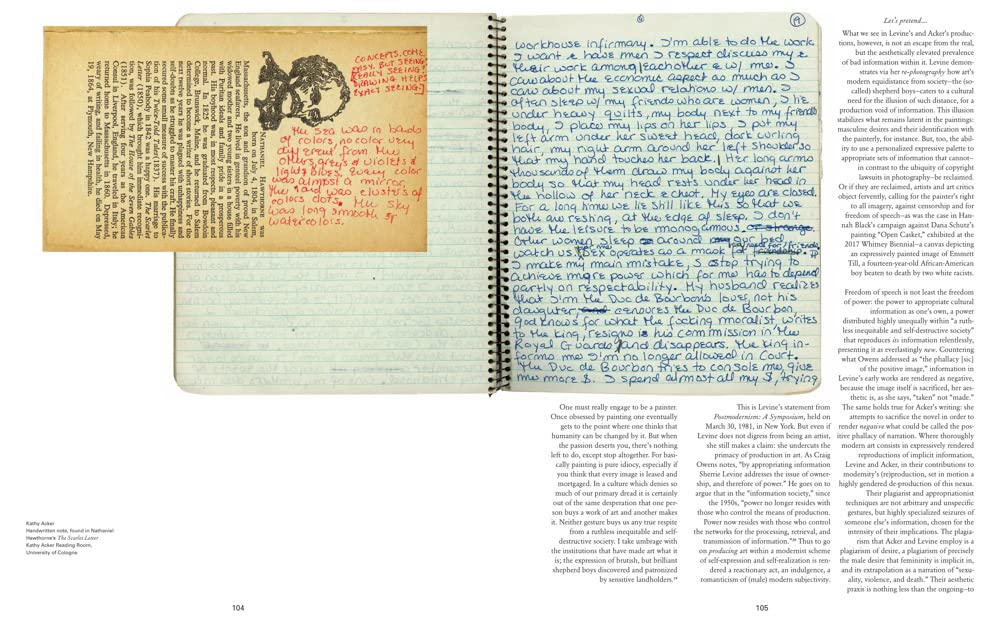 NATHANIEL HAWTHORNE was
born on July 4, 1804, in Salem,
Massachusetts, the son and grandson of proud New
England seafarers. He lived in genteel poverty with his
widowed mother and two young sisters in a house filled
with Puritan ideals and family pride in a prosperous
past. His boyhood was, in most respects, pleasant and
normal. In 1825 he was graduated from Bowdoin
College, Brunswick, Maine, and he returned to Salem
determined to become a writer of short stories. For the
next twelve years he was plagued with unhappiness and
self-doubts as he struggled to master his craft. He finally
secured some small measure of success with the publica-
tion of his Twice-Told Tales (1837). His marriage to
Sophia Peabody in 1842 was a happy one. The Scarlet
Letter (1850), which brought him immediate recogni-
tion, was followed by The House of the Seven Gables
(1851). After serving four years as the American
Consul in Liverpool, England, he traveled in Italy; he
returned home to Massachusetts in 1860. Depressed,
weary of writing, and failing in health, he died on May
19, 1864, at Plymouth, New Hampshire.
CONCEPTS COME
EASY. BUT SEEING!
REALLY SEEING!
[DRAWING HELPS
EXACT SEEING.]
The sea was in bands
of colors, no color very
different from the
others, greys & violets &
light blues. Every color
was almost a mirror,
the sand was clusters of
colors dots. The sky
was long smooth
watercolors.
workhouse infirmary. I'm able to do the work
I want & have men I respect discuss my &
their work among eachother & w/ me. I
care about the economic aspect as much as I
care about my sexual relations w/ men. I
often sleep w/ my friends who are women, I lie
under heavy quilts, my body next to my friends
body, I place my lips on her lips, I put my
left arm under her sweet head, dark curling
hair, my right arm around her left shoulder so
that my hand touches her back. Her long arms
thousands of them draw my body against her
body so that my head rests under her head in
the hollow of her neck & chest. My eyes are closed.
For a long time we lie still like this so that we
both are resting, at the edge of sleep. I don't
have the leisure to be monogamous or strange.
Other women sleep around our bed
watch us. for me Sex operates as a mask for need for friends. If
I make my main mistake, I stop trying to
achieve more power which for me has to depend
partly on respectability. My husband realizes
that I'm the Duc de Bourbons lover, not his
daughter, and censures the Duc de Bourbon,
god knows for what the fucking moralist, writes
to the king, resigns his commission in the
Royal Guards and disappears. The king in-
forms me I'm no longer allowed in Court.
The Duc de Bourbon tries to console me, give
me more $. I spend almost all my $, trying
One must really engage to be a painter.
Once obsessed by painting one eventually
gets to the point where one thinks that
humanity can be changed by it. But when
the passion deserts you, there's nothing
left to do, except stop altogether. For basi-
cally painting is pure idiocy, especially if
you think that every image is leased and
mortgaged. In a culture which denies so
much of our primary dread it is certainly
out of the same desperation that one per-
son buys a work of art and another makes
it. Neither gesture buys us any true respite
from a ruthless inequitable and self-
destructive society. I take umbrage with
the institutions that have made art what it
is; the expression of brutish, but brilliant
shepherd boys discovered and patronized
by sensitive landholders.
This is Levine's statement from
Postmodernism: A Symposium, held on
March 30, 1981, in New York. But even if
Levine does not digress from being an artist,
she still makes a claim: she undercuts the
primacy of production in art. As Craig
Owens notes, "by appropriating information
Sherrie Levine addresses the issue of owner-
ship, and therefore of power." He goes on to
argue that in the "information society," since
the 1950s, "power no longer resides with
those who control the means of production.
Power now resides with those who control
the networks for the processing, retrieval, and
transmission of information." Thus to go
on producing art within a modernist scheme
of self-expression and self-realization is ren-
dered a reactionary act, an indulgence, a
romanticism of (male) modern subjectivity.
Let's pretend...
What we see in Levine's and Acker's produc-
tions, however, is not an escape from the real,
but the aesthetically elevated prevalence
of bad information within it. Levine demon-
strates via her re-photography how art's
modern equidistance from society—the (so-
called) shepherd boys—caters to a cultural
need for the illusion of such distance, for a
production void of information. This illusion
stabilizes what remains latent in the paintings:
masculine desires and their identification with
the painterly, for instance. But, too, the abil-
ity to use a personalized expressive palette to
appropriate sets of information that cannot—
in contrast to the ubiquity of copyright
lawsuits in photography—be reclaimed.
Or if they are reclaimed, artists and art critics
object fervently, calling for the painter's right
to all imagery, against censorship and for
freedom of speech—as was the case in Han-
nah Black's campaign against Dana Schutz's
painting "Open Casket," exhibited at the
2017 Whitney Biennial—a canvas depicting
an expressively painted image of Emmett
Till, a fourteen-year-old African-American
boy beaten to death by two white racists.
Freedom of speech is not least the freedom
of power: the power to appropriate cultural
information as one's own, a power
distributed highly unequally within "a ruth-
less inequitable and self-destructive society"
that reproduces its information relentlessly,
presenting it as everlastingly new. Countering
what Owens addressed as "the phallacy [sic]
of the positive image," information in
Levine's early works are rendered as negative,
because the image itself is sacrificed, her aes-
thetic is, as she says, "taken" not "made."
The same holds true for Acker's writing: she
attempts to sacrifice the novel in order to
render negative what could be called the pos-
itive phallacy of narration. Where thoroughly
modern art consists in expressively rendered
reproductions of implicit information,
Levine and Acker, in their contributions to
modernity's (re)production, set in motion a
highly gendered de-production of this nexus.
Their plagiarist and appropriationist
techniques are not arbitrary and unspecific
gestures, but highly specialized seizures of
someone else's information, chosen for the
intensity of their implications. The plagia-
rism that Acker and Levine employ is a
plagiarism of desire, a plagiarism of precisely
the male desire that femininity is implicit in,
and its extrapolation as a narration of "sexu-
ality, violence, and death." Their aesthetic
praxis is nothing less than the ongoing-to-
Kathy Acker
Handwritten note, found in Nathaniel
Hawthorne's The Scarlet Letter
Kathy Acker Reading Room,
University of Cologne
104
105